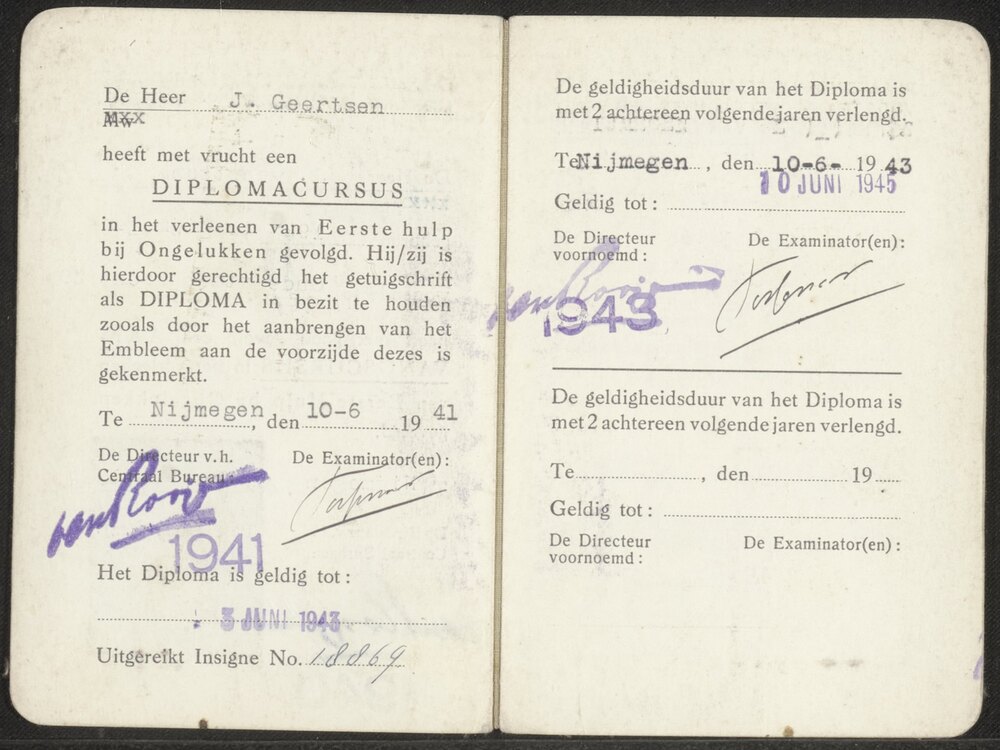 De Heer J. Geertsen
Mw
heeft met vrucht een
DIPLOMACURSUS
in het verleenen van Eerste hulp
bij Ongelukken gevolgd. Hij/zij is
hierdoor gerechtigd het getuigschrift
als DIPLOMA in bezit te houden
zooals door het aanbrengen van het
Embleem aan de voorzijde dezes is
gekenmerkt.
Te Nijmegen, den 10-6 19 41
De Directeur v.h. De Examinator(en):
Centraal Bureau
van Rooij
1941
Het Diploma is geldig tot:
3 JUNI 1943
Uitgereikt Insigne No. 18869
De geldigheidsduur van het Diploma is
met 2 achtereen volgende jaren verlengd.
Te Nijmegen, den 10-6- 19 43
10 JUNI 1945
Geldig tot:
De Directeur De Examinator(en):
voornoemd:
van Rooij
1943
De geldigheidsduur van het Diploma is
met 2 achtereen volgende jaren verlengd.
Te , den 19
Geldig tot:
De Directeur De Examinator(en):
voornoemd: